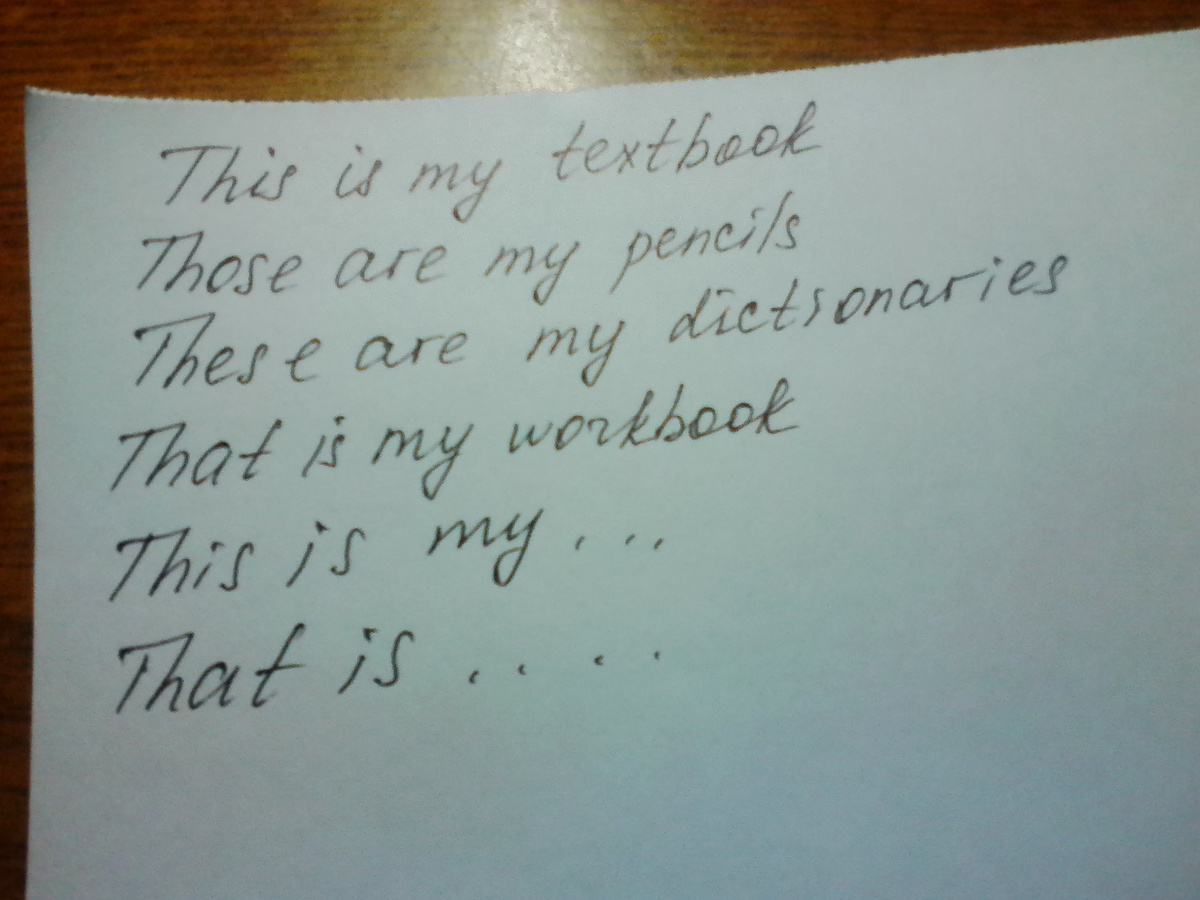 This is my textbook
Those are my pencils
These are my dictionaries
That is my workbook
This is my...
That is ....